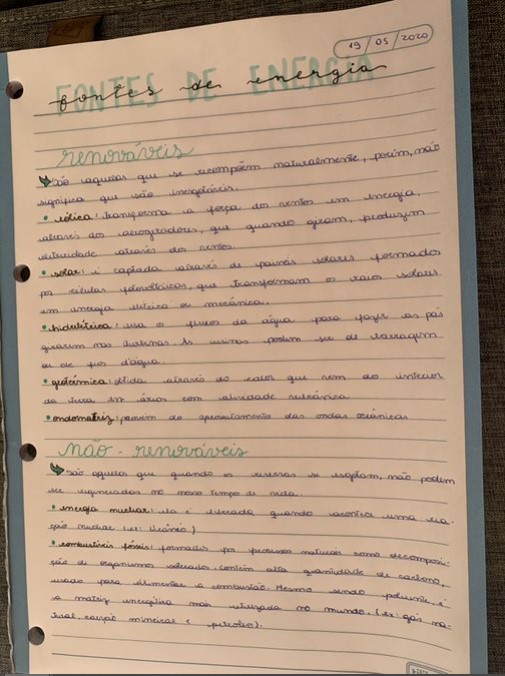 19 / 05 / 2020
FONTES DE ENERGIA
fontes de energia
renováveis
São aquelas que se recompõem naturalmente, porém, não
significa que são inesgotáveis.
• eólica: transforma a força dos ventos em energia,
através dos aerogeradores, que quando giram, produzem
eletricidade através dos ventos
• solar: é captada através de painéis solares formados
por células fotovoltaicas, que transformam os raios solares
em energia elétrica ou mecânica.
• hidrelétrica: usa o fluxo da água para fazer as pás
girarem nas turbinas. As usinas podem ser de barragem
ou de fios d'água.
• geotérmica: obtida através do calor que vem do interior
da terra em áreas com atividade vulcânica
• ondomotriz: provém do aproveitamento das ondas oceânicas
não-renováveis
São aquelas que quando as reservas se esgotam, não podem
ser regeneradas no nosso tempo de vida.
• energia nuclear: ela é liberada quando acontece uma rea-
ção nuclear (ex: Urânio)
• combustíveis fósseis: formados por processos naturais como decomposi-
ção de organismos soterrados. contêm alta quantidade de carbono,
usado para alimentar a combustão. Mesmo sendo poluente, é
a matriz energética mais utilizada no mundo. (ex: gás na-
tural, carvão mineral e petróleo).